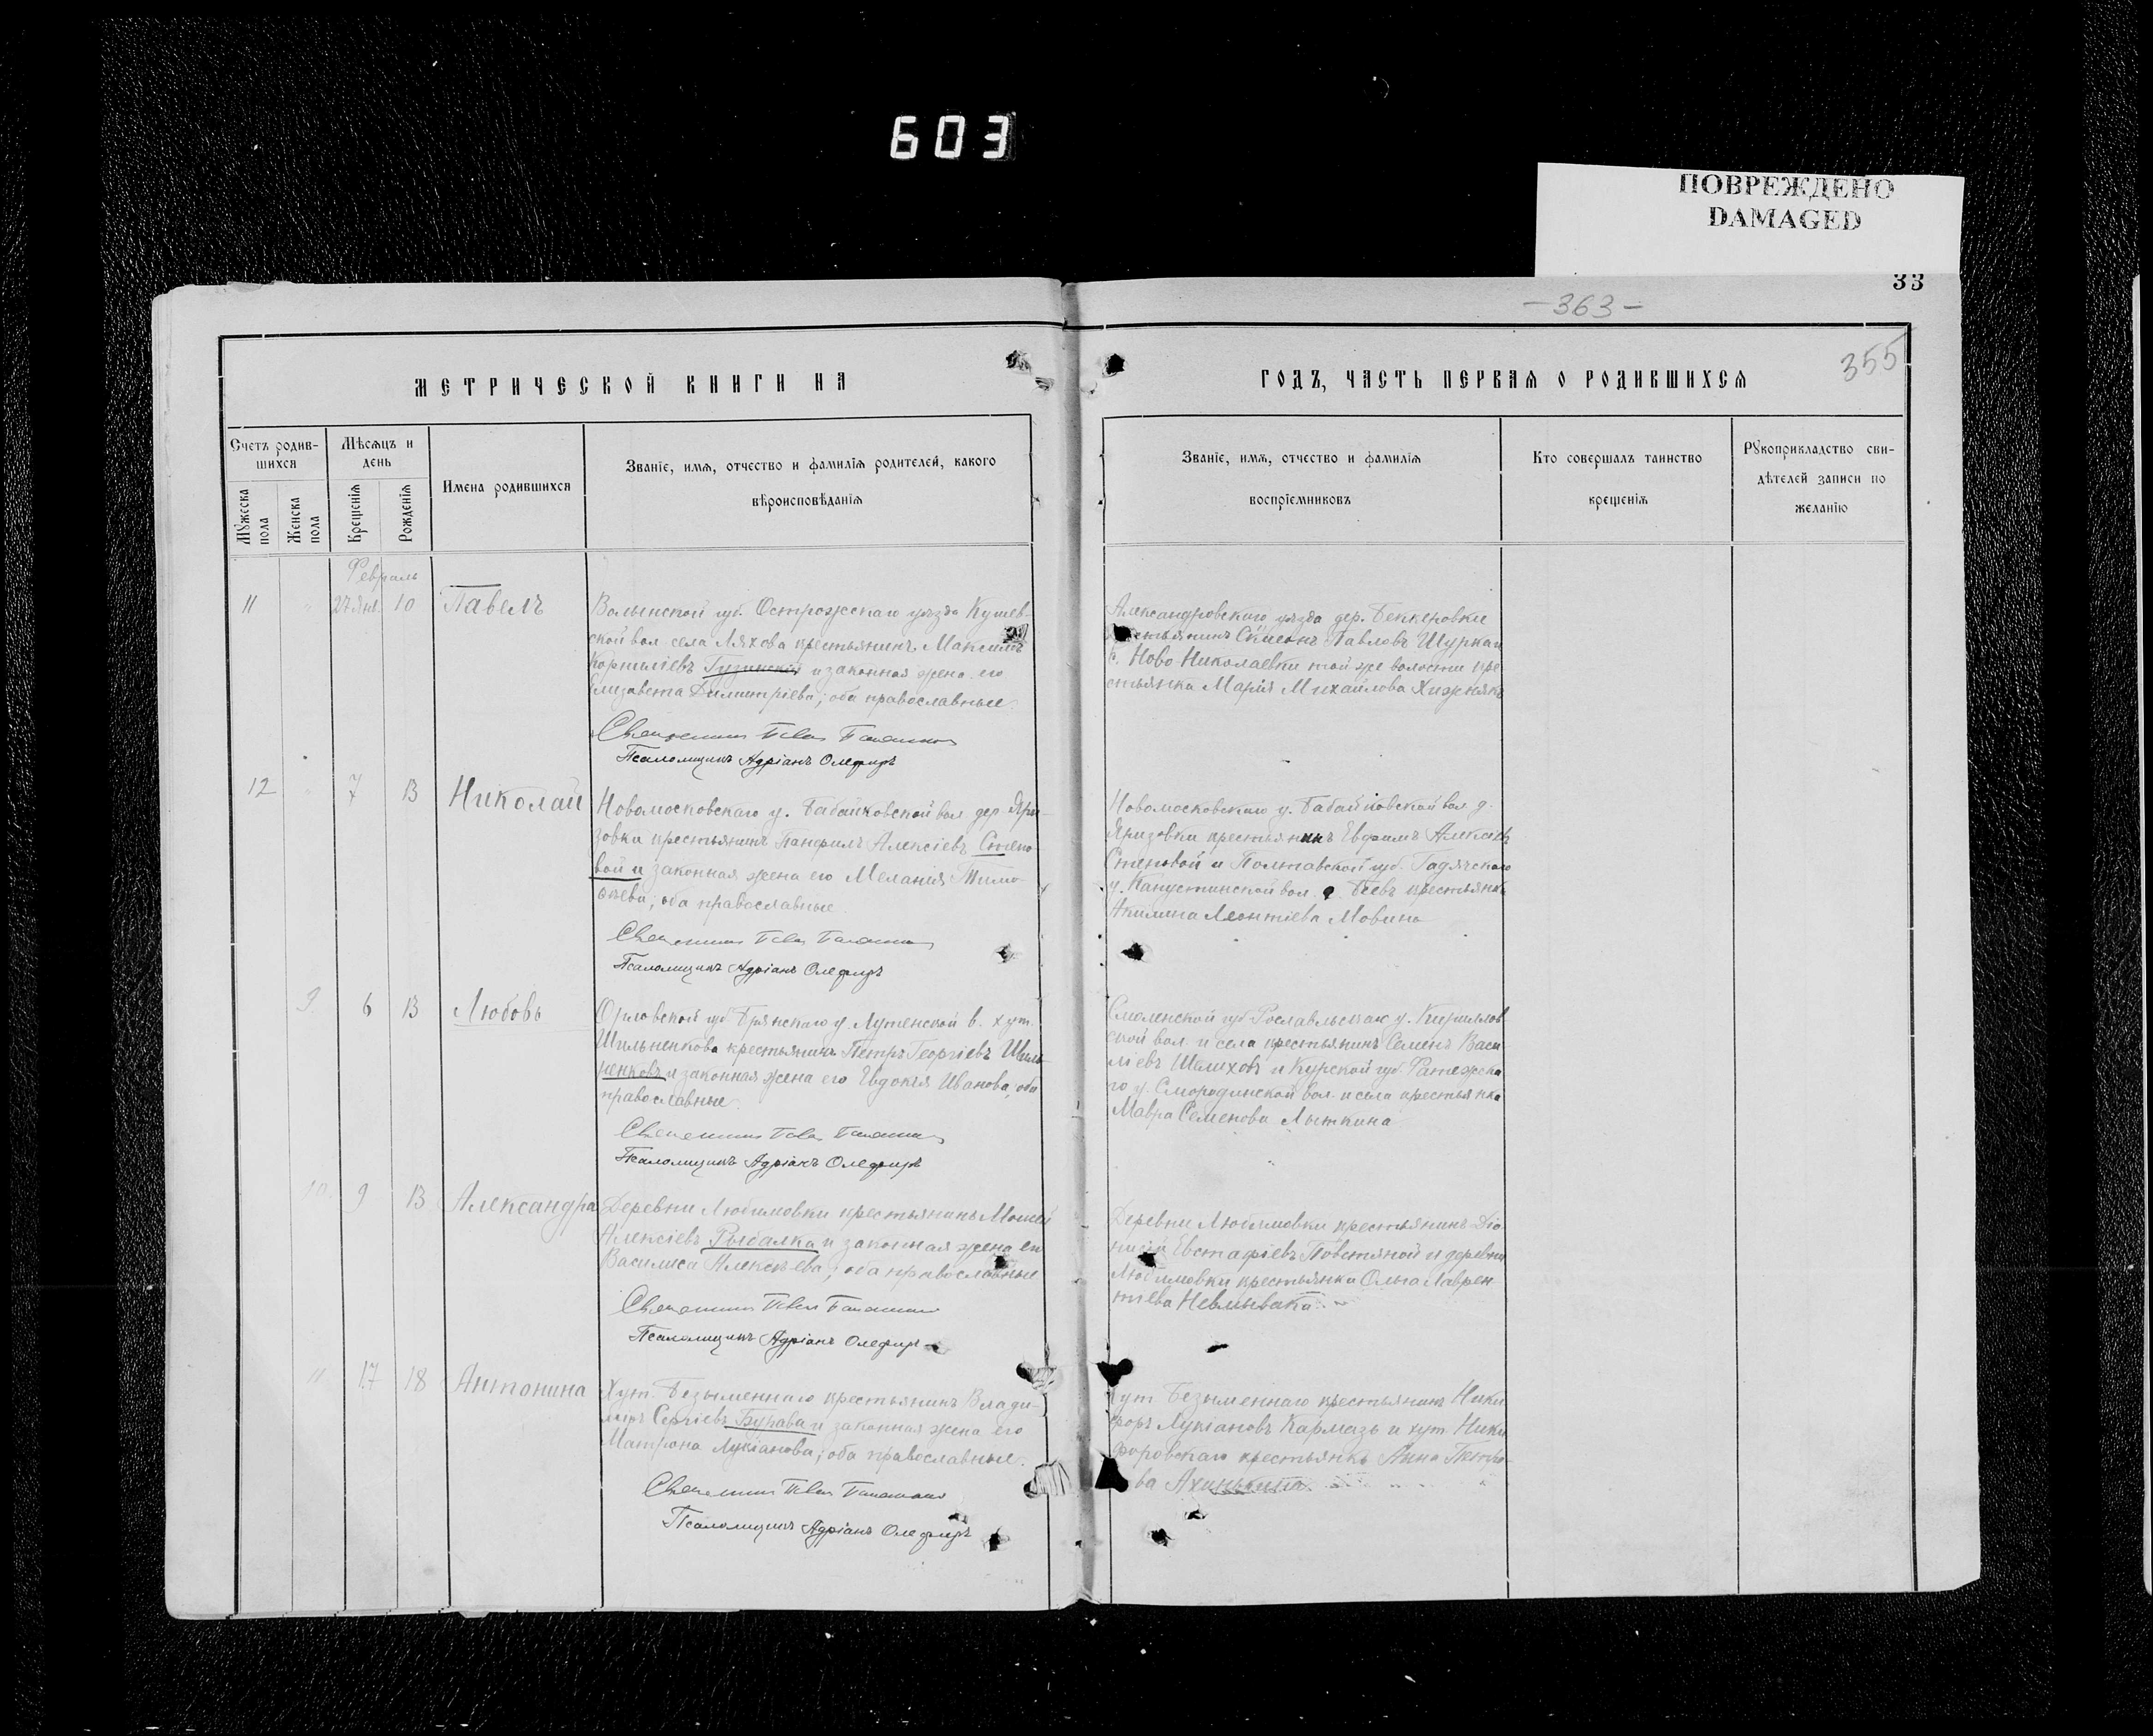 603
ПОВРЕЖДЕНО
DAMAGED
33
-363-
355
МЕТРИЧЕСКОЙ КНИГИ НА
ГОДЪ, ЧАСТЬ ПЕРВАЯ О РОДИВШИХСЯ
Счетъ родив-
шихся
Мужеска пола
Женска пола
Мѣсяцъ и
день
Крещенія
Рожденія
Имена родившихся
Званіе, имя, отчество и фамилія родителей, какого
вѣроисповѣданія
Званіе, имя, отчество и фамилія
воспріемниковъ
Кто совершалъ таинство
крещенія
Рукоприкладство сви-
дѣтелей записи по
желанію
Февраль
11 " 27 Янв. 10 Павелъ
Волынской губ. Острожскаго уѣзда
ской вол. села Ляхова крестьянинъ Максимъ
Корниліевъ и законная жена его
Елизавета Димитріева; оба православные.
Священникъ
Псаломщикъ Адріанъ Олефиръ
Александровскаго уѣзда дер. Беккеровки
Павловъ Шуркан
с. Ново Николаевки той же волости кре
стьянка Марія Михайлова Хижнякъ
12 " 7 13 Николай
Новомосковскаго у. Бабайковской вол. дер. Яри-
зовки крестьянинъ Панфилъ Алексіевъ Степо-
вой и законная жена его Меланія Тимо-
ѳеева; оба православные.
Священникъ
Псаломщикъ Адріанъ Олефиръ
Новомосковскаго у. Бабайковской вол. д.
Яризовки крестьянинъ Евфимъ Алексіевъ
Степовой и Полтавской губ. Гадячскаго
у. Капустинской вол. крестьянка
Акилина Леонтіева
9. 6 13 Любовь
Орловской губ. Брянскаго у. в. хут.
крестьянинъ Петръ Георгіевъ
и законная жена его Евдокія Иванова, оба
православные.
Священникъ
Псаломщикъ Адріанъ Олефиръ
Смоленской губ. Рославльскаго у. Кириллов
ской вол. и села крестьянинъ Семенъ Васи
ліевъ Шелиховъ и Курской губ. Фатежска
го у. Смородинской вол. и села крестьянка
Мавра Семенова Лыткина
10. 9 13 Александра
Деревни Любимовки крестьянинъ Моисей
Алексіевъ Рыбалка и законная жена его
Василиса Алексѣева; оба православные
Священникъ
Псаломщикъ Адріанъ Олефиръ
Деревни Любимовки крестьянинъ Діо-
нисій Евстафіевъ Повстяной и деревни
Любимовки крестьянка Ольга Лаврен-
тіева
11 17 18 Антонина
Хут. Безыменнаго крестьянинъ Влади-
міръ Сергіевъ и законная жена его
Матрона Лукіанова; оба православные.
Священникъ
Псаломщикъ Адріанъ Олефиръ
Хут. Безыменнаго крестьянинъ Ники
форъ Лукіановъ Кармазь и хут. Ники
форовскаго крестьянка Анна Петро-
ва